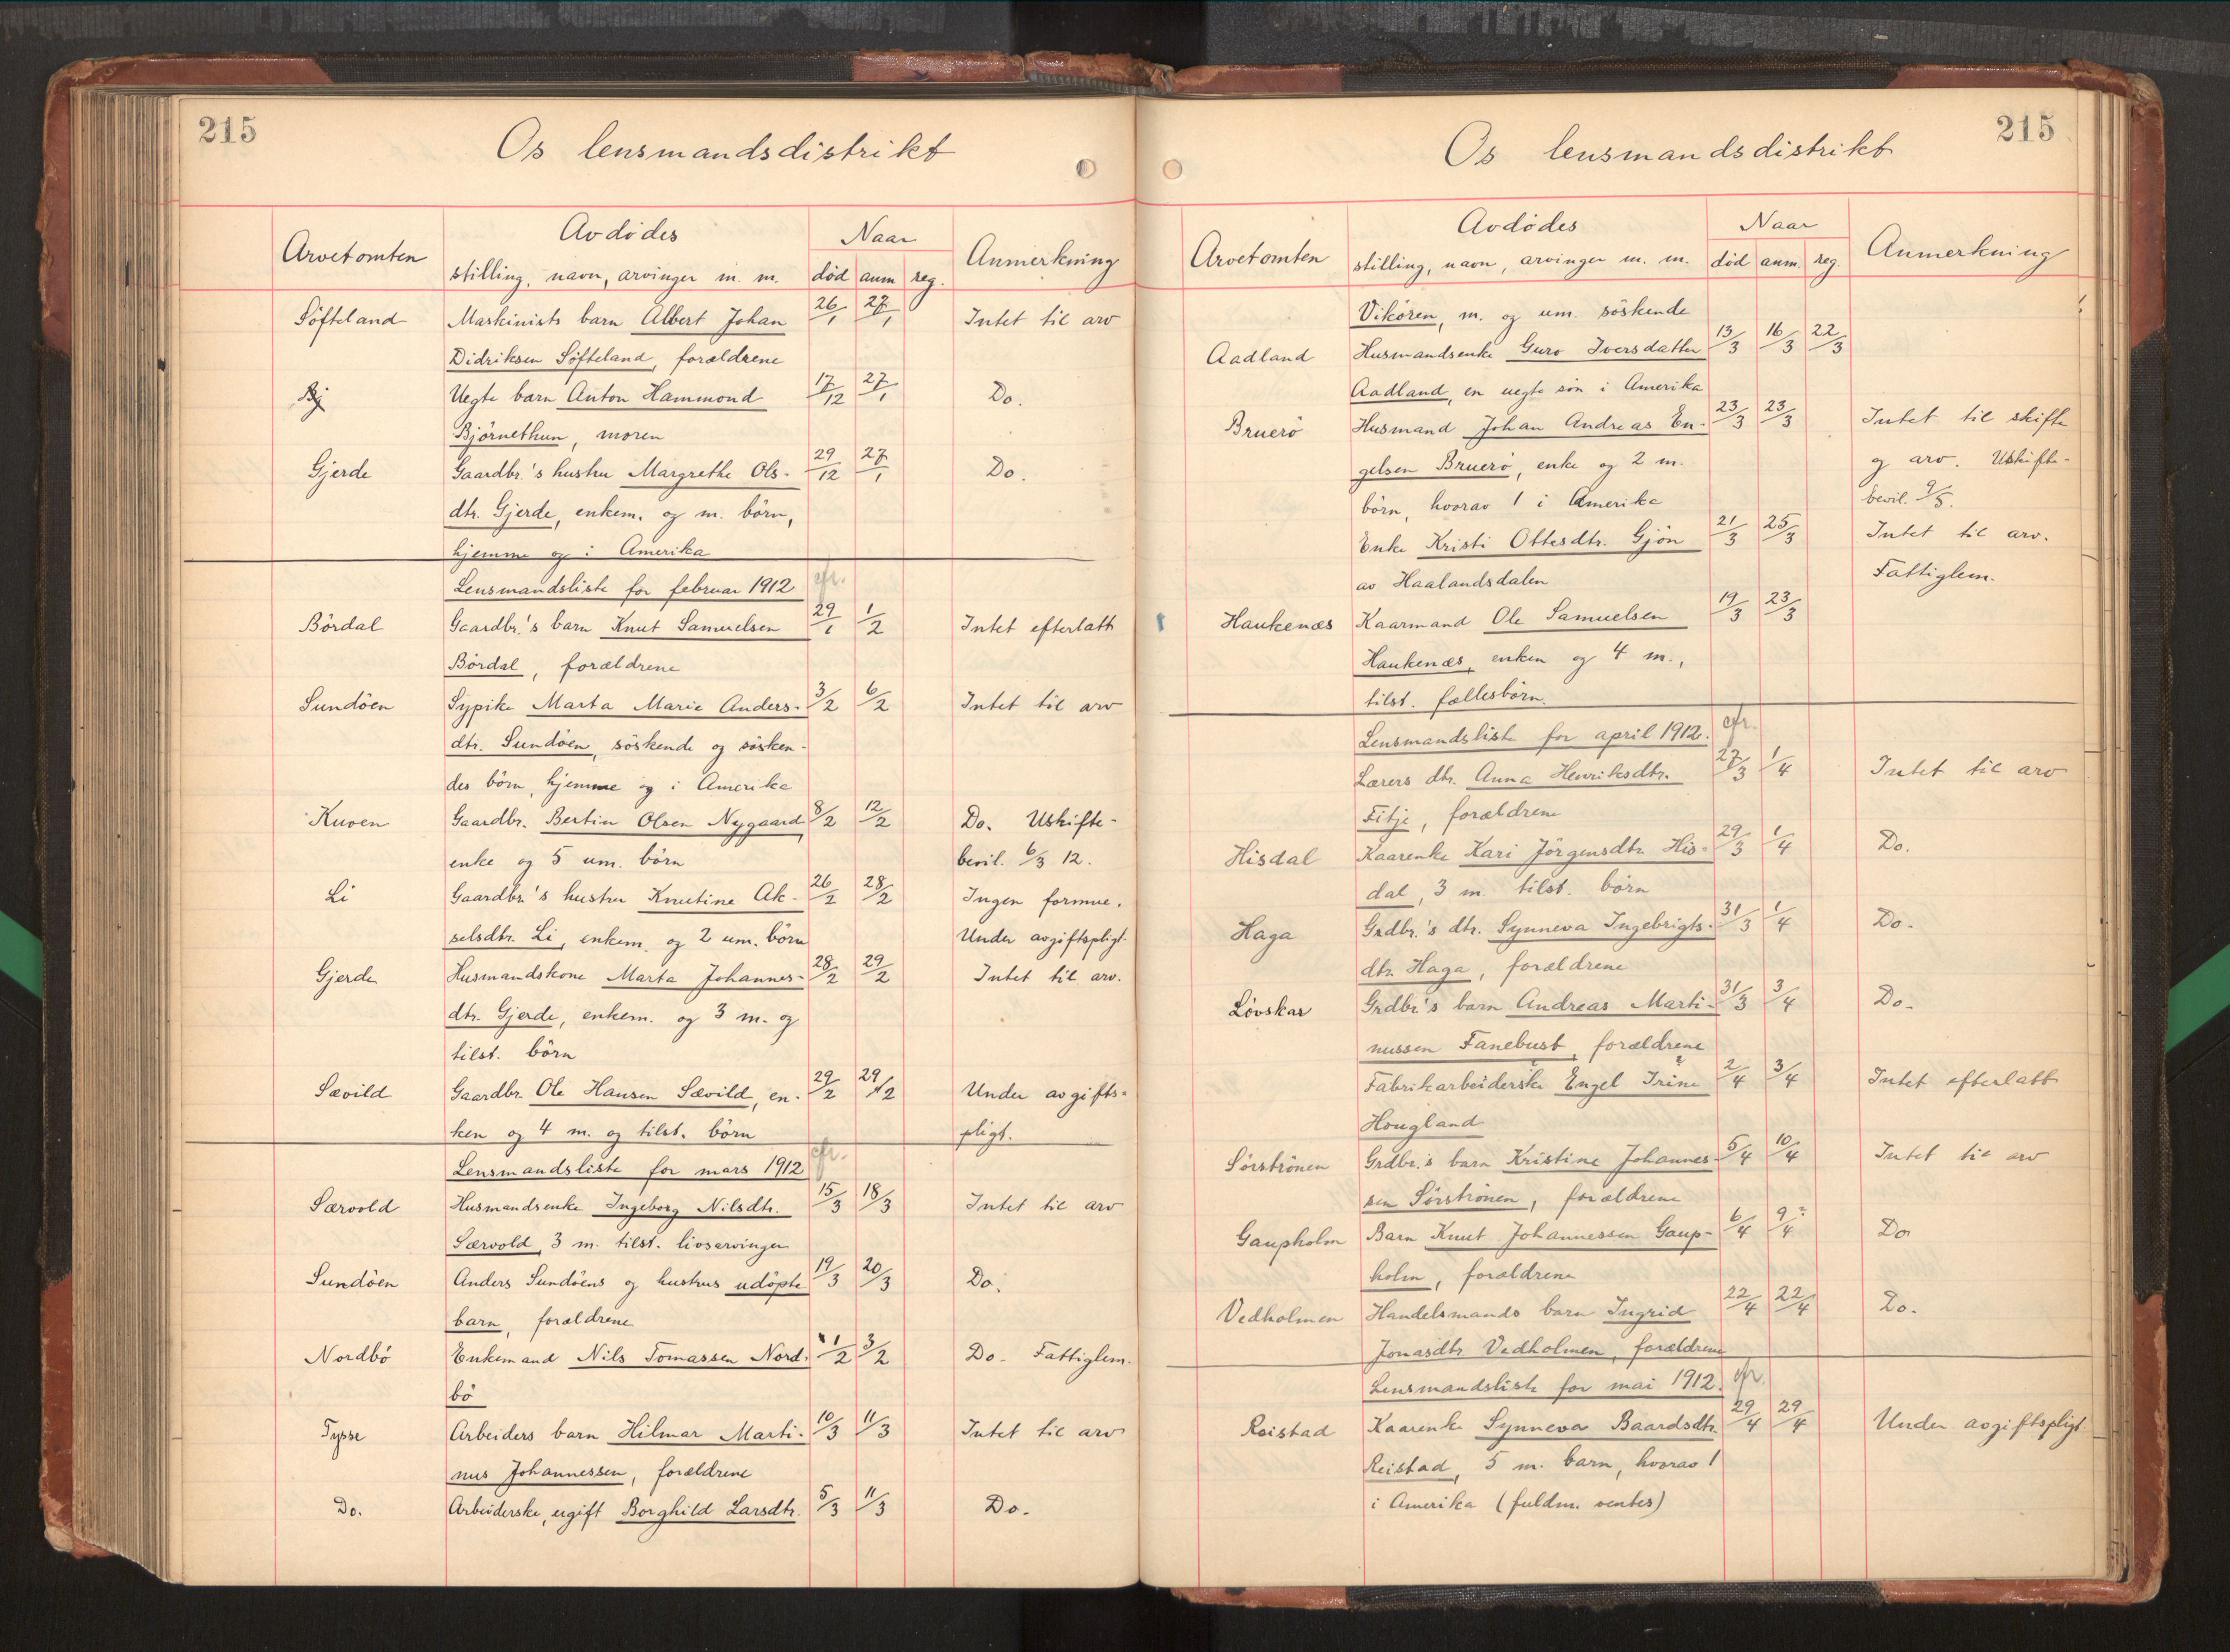 215
Os lensmandsdistrikt
Arvetomten
Avdödes
stilling, navn, arvinger m. m.
Naar
död anm reg.
Anmerkning
Söfteland Maskinists barn Albert Johan 26/1 27/1 Intet til arv
Didriksen Söfteland, forældrene
Bj Uegte barn Anton Hammond 17/12 27/1 Do.
Björnethun, moren
Gjerde Gaardbr.'s hustru Margrethe Ols- 29/12 27/1 Do.
dtr. Gjerde, enkem. og m. börn,
hjemme og i Amerika
Lensmandsliste for februar 1912 cfr.
Bördal Gaardbr.'s barn Knut Samuelsen 29/1 1/2 Intet efterlatt
Bördal, forældrene
Sundöen Sypike Marta Marie Anders- 3/2 6/2 Intet til arv
dtr. Sundöen, söskende og sösken-
des börn, hjemme og i Amerika
Kuven Gaardbr. Bertin Olsen Nygaard, 8/2 12/2 Do. Uskifte-
enke og 5 um. börn bevil. 6/3 12.
Li Gaardbr.'s hustru Knutine Ak- 26/2 28/2 Ingen formue.
selsdtr. Li, enkem. og 2 um. börn Under avgiftspligt.
Gjerde Husmandskone Marta Johannes- 28/2 29/2 Intet til arv.
dtr. Gjerde, enkem. og 3 m. og
tilst. börn
Sævild Gaardbr. Ole Hansen Sævild, en- 29/2 29/2 Under avgifts-
ken og 4 m. og tilst. börn pligt.
Lensmandsliste for mars 1912 cfr.
Særvold Husmandsenke Ingeborg Nilsdtr. 15/3 18/3 Intet til arv
Særvold, 3 m. tilst. livsarvinger
Sundöen Anders Sundöens og hustrus udöpte 19/3 20/3 Do.
barn, forældrene
Nordbö Enkemand Nils Tomassen Nord- 1/2 3/2 Do. Fattiglem.
bö
Tysse Arbeiders barn Hilmar Marti- 10/3 11/3 Intet til arv
nus Johannessen, forældrene
Do. Arbeiderske, ugift Borghild Larsdtr. 5/3 11/3 Do.
215
Os lensmandsdistrikt
Arvetomten
Avdödes
stilling, navn, arvinger m. m.
Naar
död anm. reg.
Anmerkning
Vikören, m. og um. söskende
Aadland Husmandsenke Guro Iversdatter 13/3 16/3 22/3
Aadland, en uegte sön i Amerika
Bruerö Husmand Johan Andreas En- 23/3 23/3 Intet til skifte
gelsen Bruerö, enke og 2 m. og arv. Uskifte-
börn, hvorav 1 i Amerika bevil. 9/5.
Enke Kristi Ottesdtr. Gjön 21/3 25/3 Intet til arv.
av Haalandsdalen Fattiglem.
Haukenæs Kaarmand Ole Samuelsen 19/3 23/3
Haukenæs, enken og 4 m.,
tilst. fællesbörn.
Lensmandsliste for april 1912. cfr.
Lærers dtr. Anna Henriksdtr. 27/3 1/4 Intet til arv
Fitje, forældrene
Hisdal Kaarenke Kari Jörgensdtr. His- 29/3 1/4 Do.
dal, 3 m. tilst. börn
Haga Grdbr.'s dtr. Synneva Ingebrigts- 31/3 1/4 Do.
dtr. Haga, forældrene
Lövskar Grdbr.'s barn Andreas Marti- 31/3 3/4 Do.
nussen Fanebust, forældrene
Fabrikarbeiderske Engel Trine 2/4 3/4 Intet efterlatt
Hougland
Sörströnen Grdbr.'s barn Kristine Johannes- 5/4 10/4 Intet til arv
sen Sörströnen, forældrene
Gaupholm Barn Knut Johannessen Gaup- 6/4 9/4 Do
holm, forældrene
Vedholmen Handelsmands barn Ingrid 22/4 22/4 Do.
Jonasdtr. Vedholmen, forældrene
Lensmandsliste for mai 1912. cfr.
Reistad Kaarenke Synneva Baardsdtr. 29/4 29/4 Under avgiftspligt
Reistad, 5 m. barn, hvorav 1
i Amerika (fuldm. ventes)